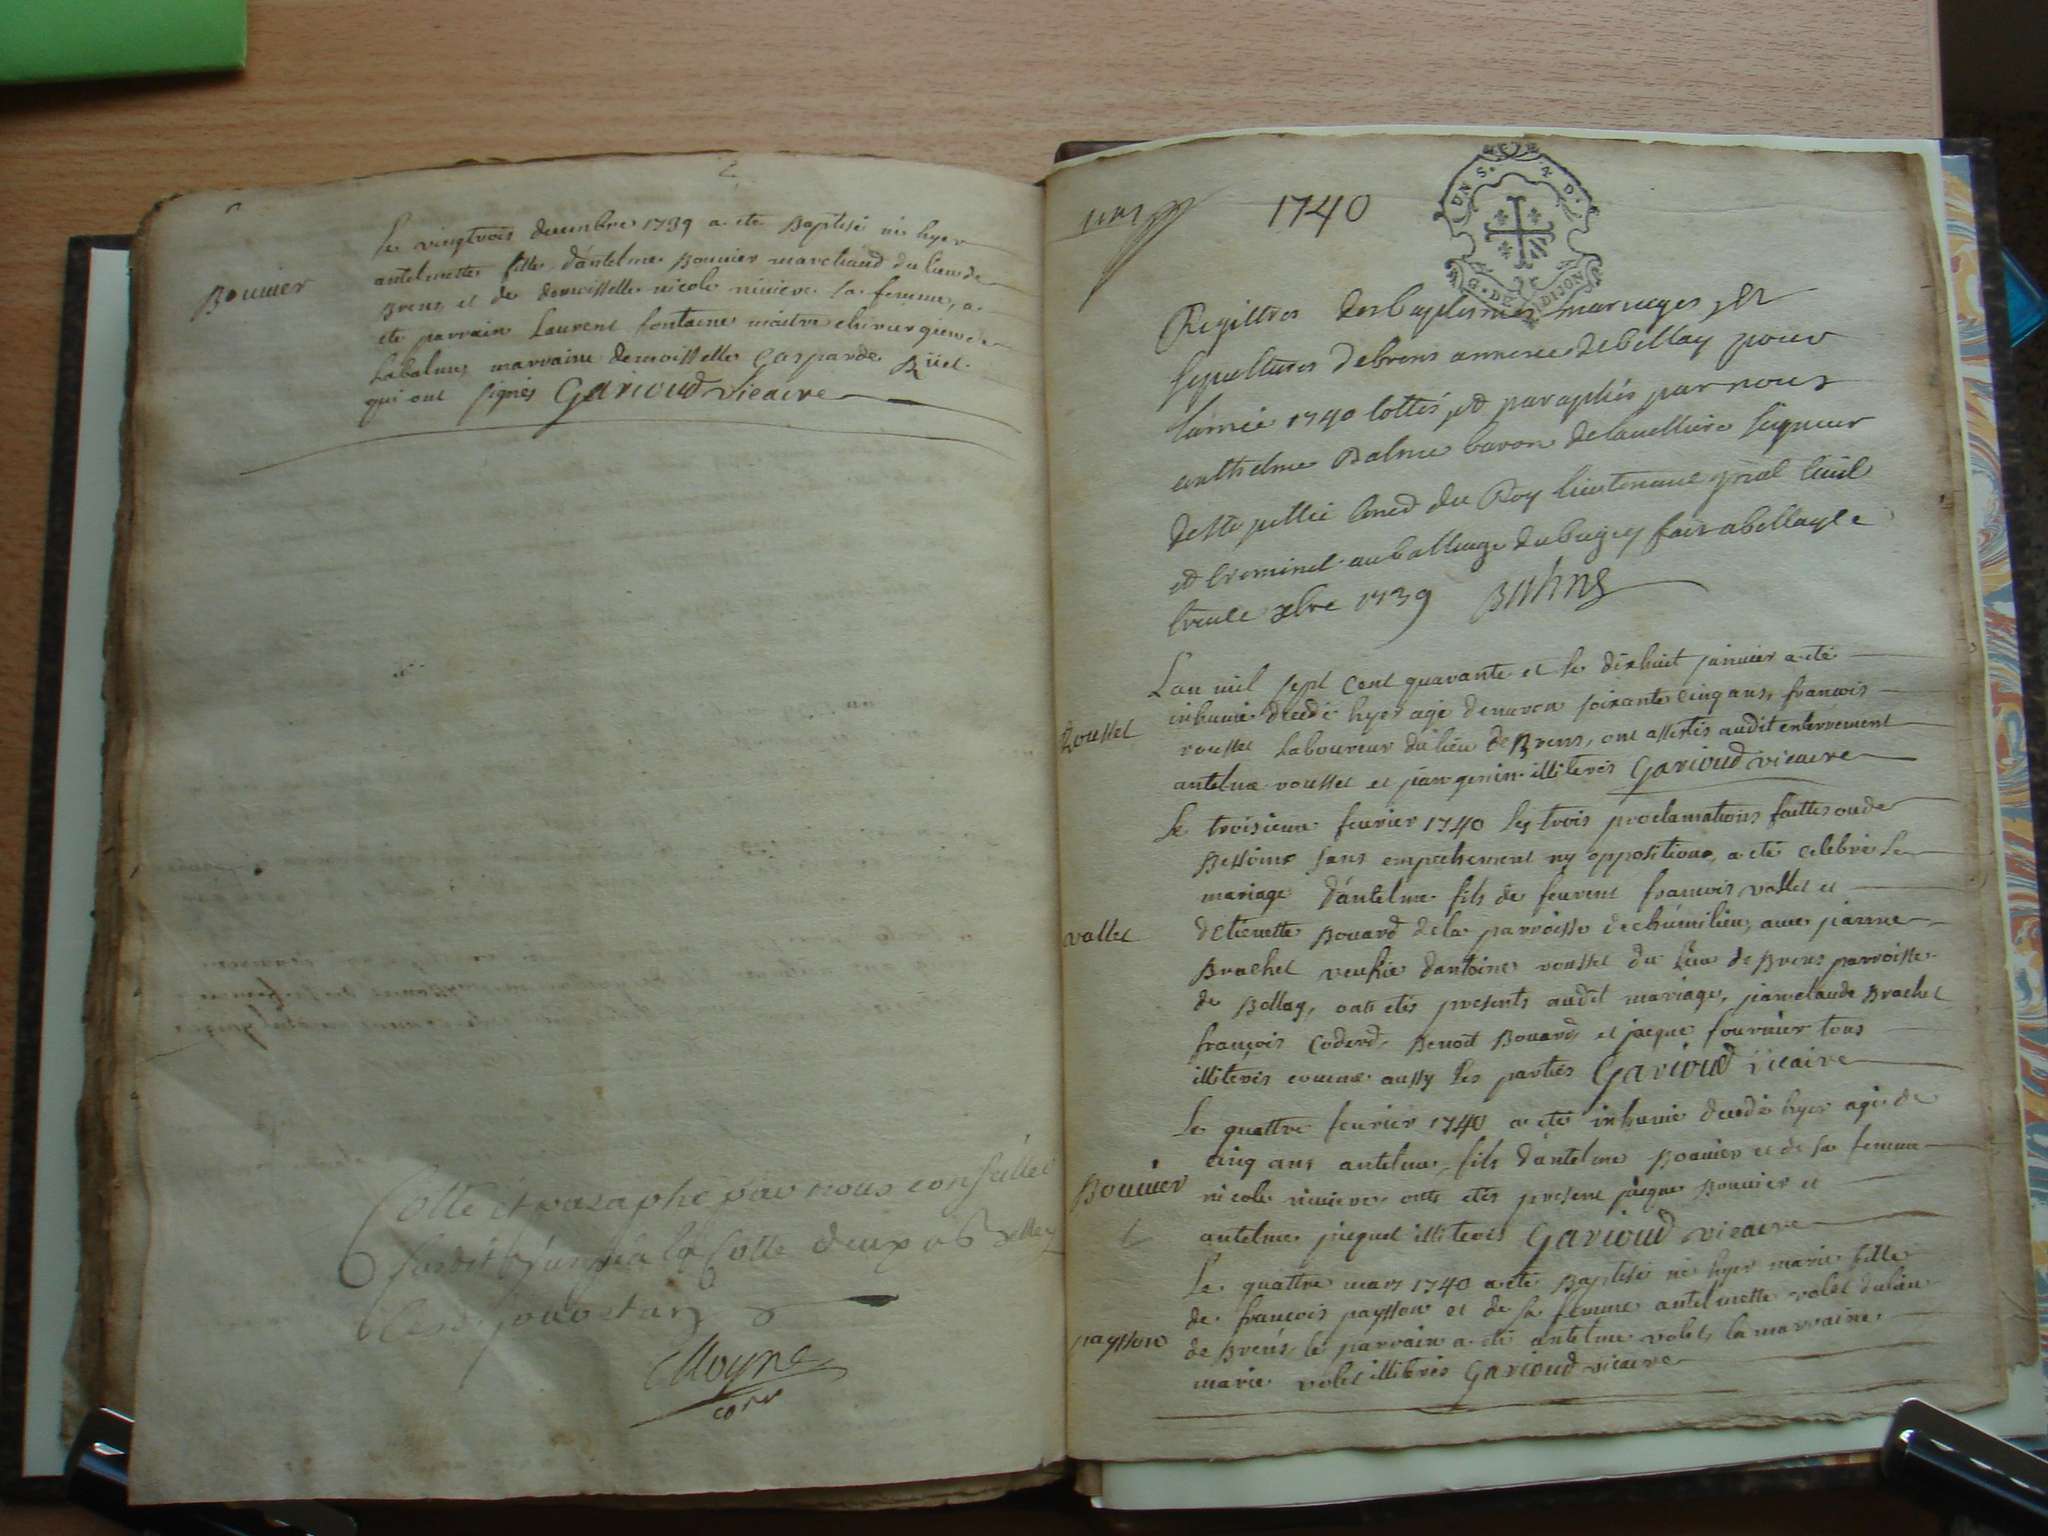 Bouvier
Le vingtrois decembre 1739 a eté Baptisé né hyer
antelmette fille d'antelme Bouvier marchand du lieu de
Brens et de demoisselle nicole riviere sa femme, a
eté parrain Laurent fontaine maitre chirurgien de
Labalme, marraine demoisselle Gasparde
qui ont signés Garioud vicaire
Cotté et paraphé par nous conseiller
la Cotte deux a Belley
Moyne
1740
UN S. N D.
G. DE DIJON
Registres des baptesmes mariages et
sepultures debrens annexe debellay pour
lannée 1740 cottés et paraphés par nous
anthelme Balme baron de seigneur
de Ste jullie du Roy lieutenant gnral Civil
et Criminel au balliage du bugey fait abellay le
trente xbre 1739
Roussel
L'an mil sept Cent quarante et le dixhuit janvier a eté
inhumé decedé hyer agé denviron soixante cinq ans, francois
roussel Laboureur du lieu de Brens, ont assistés audit enterrement
antelme roussel et jean genin illiterés Garioud vicaire
vallet
Le troisieme fevrier 1740 les trois proclamations faittes ou de
Bessoins sans empechement ny opposition, a eté celebré le
mariage d'antelme fils de francois vallet et
d'Etienette Bouard dela parroisse de chimilieu, avec jeanne
Brachet d'antoine roussel du lieu de Brens parroisse
de Bellay, onts etés presents audit mariage, jean claude Brachet
françois Coderd, Benoit Bouard, et jacque fournier tous
illiterés comme aussy les parties Garioud vicaire
Bouvier
Le quattre fevrier 1740 a eté inhumé decedé hyer agé de
cinq ans antelme, fils d'antelme Bouvier et de sa femme
nicole riviere onts etés present jacque Bouvier et
antelme jacquet illiterés Garioud vicaire
paysson
Le quattre mars 1740 a eté Baptisé né hyer marie fille
de françois paysson et de sa femme antelmette volet du lieu
de Brens, le parrain a eté antelme volet, la marraine
marie volet illiterés Garioud vicaire